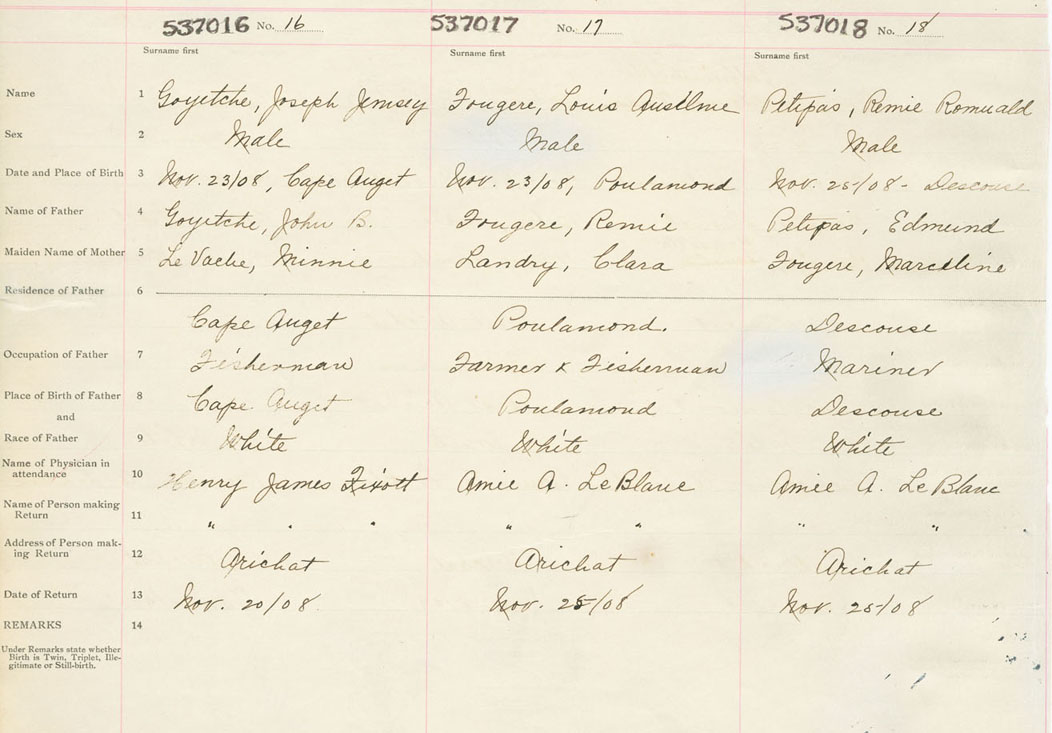 537016 No. 16 537017 No. 17 537018 No. 18
Surname first Surname first Surname first
Name 1 Goyetche, Joseph Jemsey Fougere, Louis Austilme Petipas, Remie Romuald
Sex 2 Male Male Male
Date and Place of Birth 3 Nov. 23/08, Cape Auget Nov. 23/08, Poulamond Nov. 25/08 - Descouse
Name of Father 4 Goyetche, John B. Fougere, Remie Petipas, Edmund
Maiden Name of Mother 5 Le Vache, Minnie Landry, Clara Fougere, Marcelline
Residence of Father 6
Cape Auget Poulamond. Descouse
Occupation of Father 7 Fisherman Farmer & Fisherman Mariner
Place of Birth of Father 8 Cape Auget Poulamond Descouse
and
Race of Father 9 White White White
Name of Physician in
attendance 10 Henry James Fixott Amie A. LeBlanc Amie A. LeBlanc
Name of Person making
Return 11 " " " " " " "
Address of Person mak-
ing Return 12 Arichat Arichat Arichat
Date of Return 13 Nov. 20/08. Nov. 25/08 Nov. 25/08
REMARKS 14
Under Remarks state whether
Birth is Twin, Triplet, Ille-
gitimate or Still-birth.